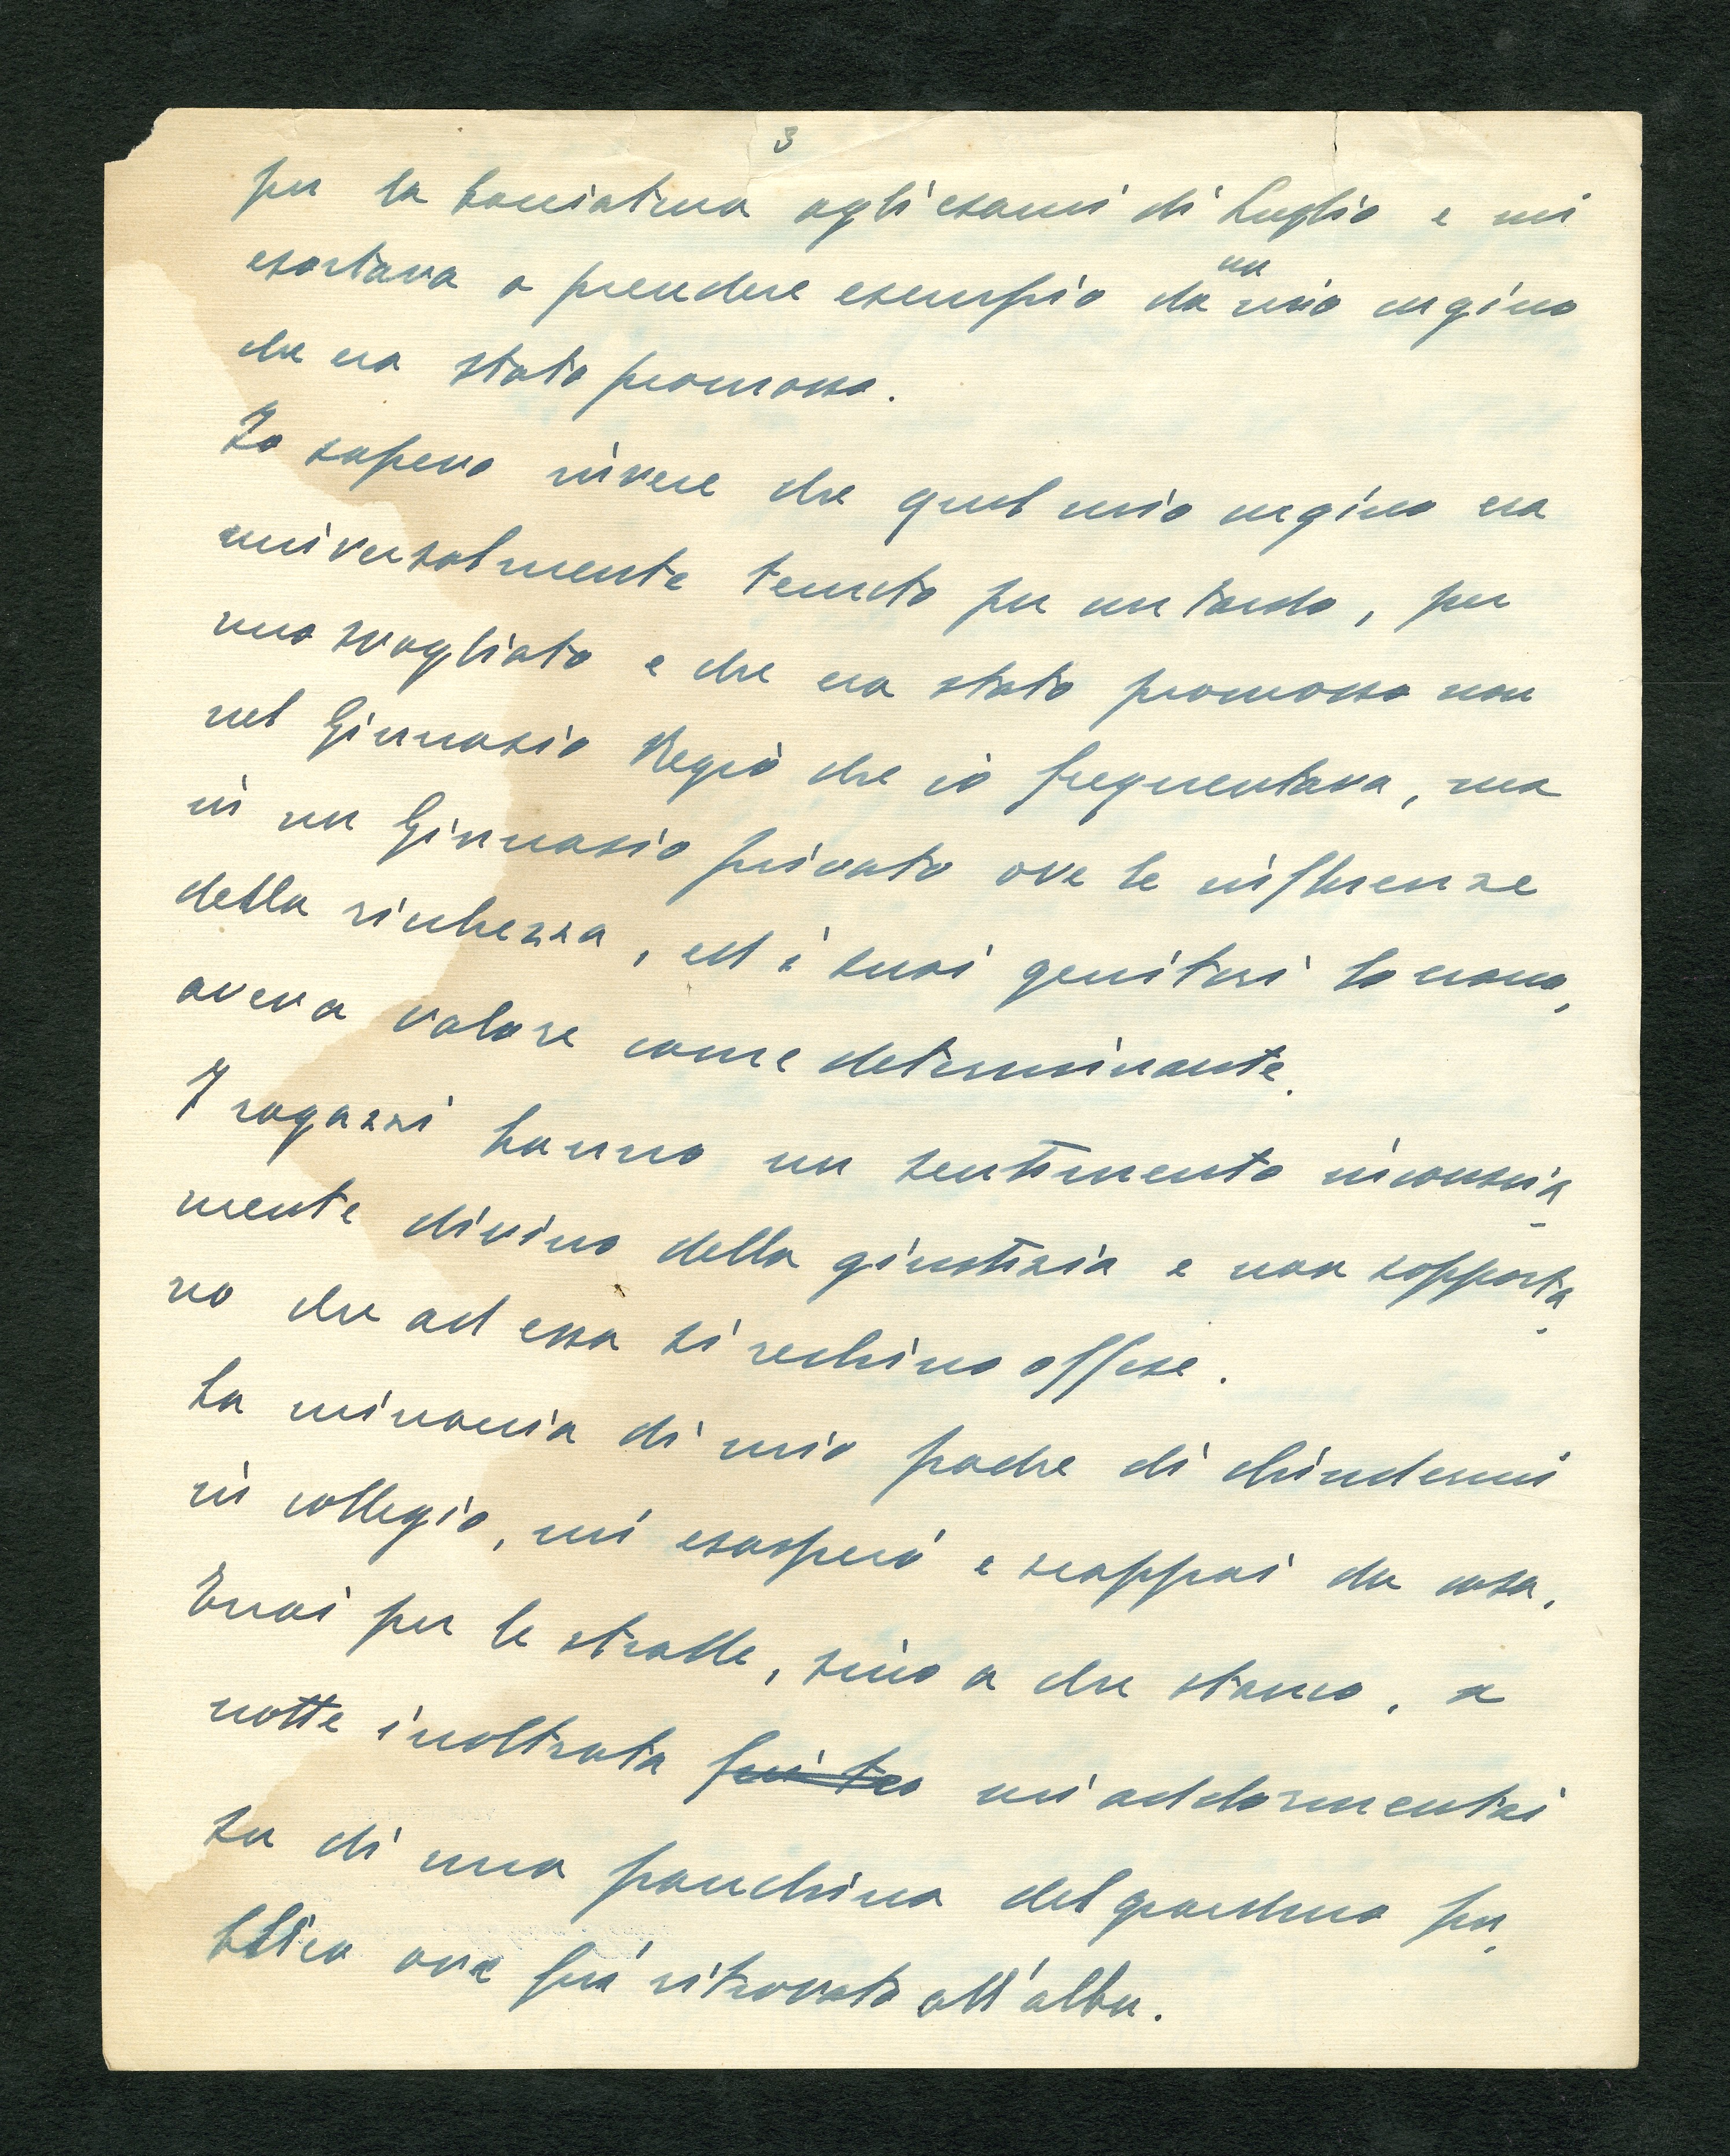 3
per la bocciatura agli esami di Luglio e mi
esortava a prendere esempio da un mio cugino
che era stato promosso.
Io sapevo invece che quel mio cugino era
universalmente tenuto per un tardo, per
uno svogliato e che era stato promosso non
nel Ginnasio Regio che io frequentava, ma
in un Ginnasio privato ove le influenze
della ricchezza, ed i suoi genitori lo erano,
aveva valore come determinante.
I ragazzi hanno un sentimento inconscia-
mente divino della giustizia e non sopporta-
no che ad essa si rechino offese.
La minaccia di mio padre di chiudermi
in collegio, mi esasperò e scappai da casa.
Errai per le strade, sino a che stanco, a
notte inoltrata mi addormentai
su di una panchina del giardino pu-
bblico ove fui ritrovato all'alba.